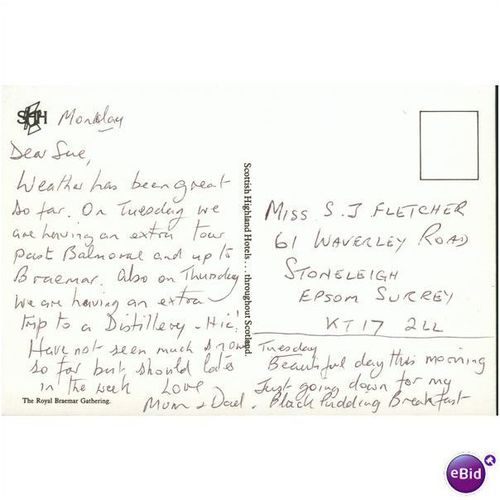 SHH
Monday
Dear Sue,
Weather has been great
so far. On Tuesday we
are having an extra tour
past Balmoral and up to
Braemar. Also on Thursday
we are having an extra
trip to a Distillery - Hic!
Have not seen much snow
so far but should later
in the week Love
Mum & Dad.
The Royal Braemar Gathering.
Scottish Highland Hotels . . . throughout Scotland.
MISS S. J FLETCHER
61 WAVERLEY ROAD
STONELEIGH
EPSOM SURREY
KT17 2LL
Tuesday
Beautiful day this morning
Just going down for my
Black Pudding Breakfast
eBid